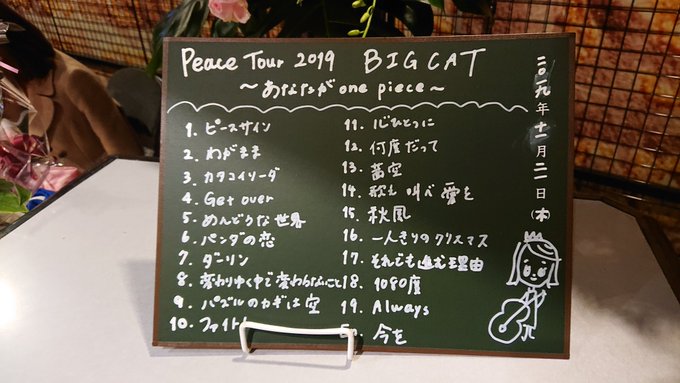 Peace Tour 2019 BIG CAT
～あなたが one piece～
1. ピースサイン
2. わがまま
3. カタコイリーダ
4. Get over
5. めんどうな世界
6. パンダの恋
7. ダーリン
8. 変わりゆく中で変わらないこと
9. パズルのカギは空
10. ファイト
11. 心ひとつに
12. 何度だって
13.
14. 歌え 叫べ 愛を
15. 秋風
16. 一人きりのクリスマス
17. それでも進む理由
18. 1080度
19. Always
今を
二〇一九年十一月二一日(木)